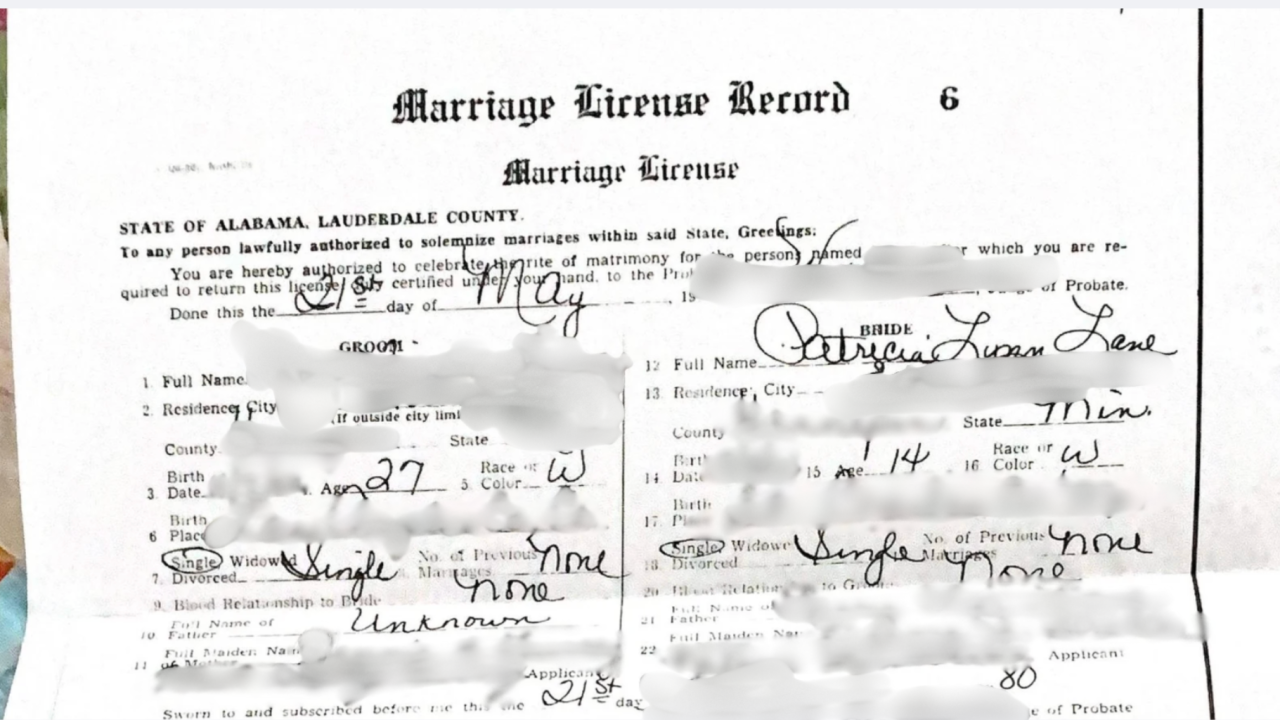 Marriage License Record 6
Marriage License
STATE OF ALABAMA, LAUDERDALE COUNTY.
To any person lawfully authorized to solemnize marriages within said State, Greetings:
You are hereby authorized to celebrate the rite of matrimony for the persons named for which you are re-
quired to return this license duly certified under your hand, to the of Probate.
Done this the 21st day of May, 19
GROOM BRIDE
1. Full Name 12 Full Name Patricia Susan Lane
2. Residence, City (If outside city limi 13. Residence, City
County State County State Min.
3. Birth Date Age 27 5. Race or Color W 14 Birth Date 15 Age 14 16 Race or Color W
6 Birth Place 17. Birth
7. Single Widowed Divorced Single No. of Previous Marriages None 18 Single Widowe Divorced Single No. of Previous Marriages None
9. Blood Relationship to Bride None 20 to None
10 Full Name of Father Unknown 21 Full Name of Father
11 Full Maiden Name of Mother 22 Full Maiden
Applicant Applicant
Sworn to and subscribed before me this the 21st day 80
of Probate